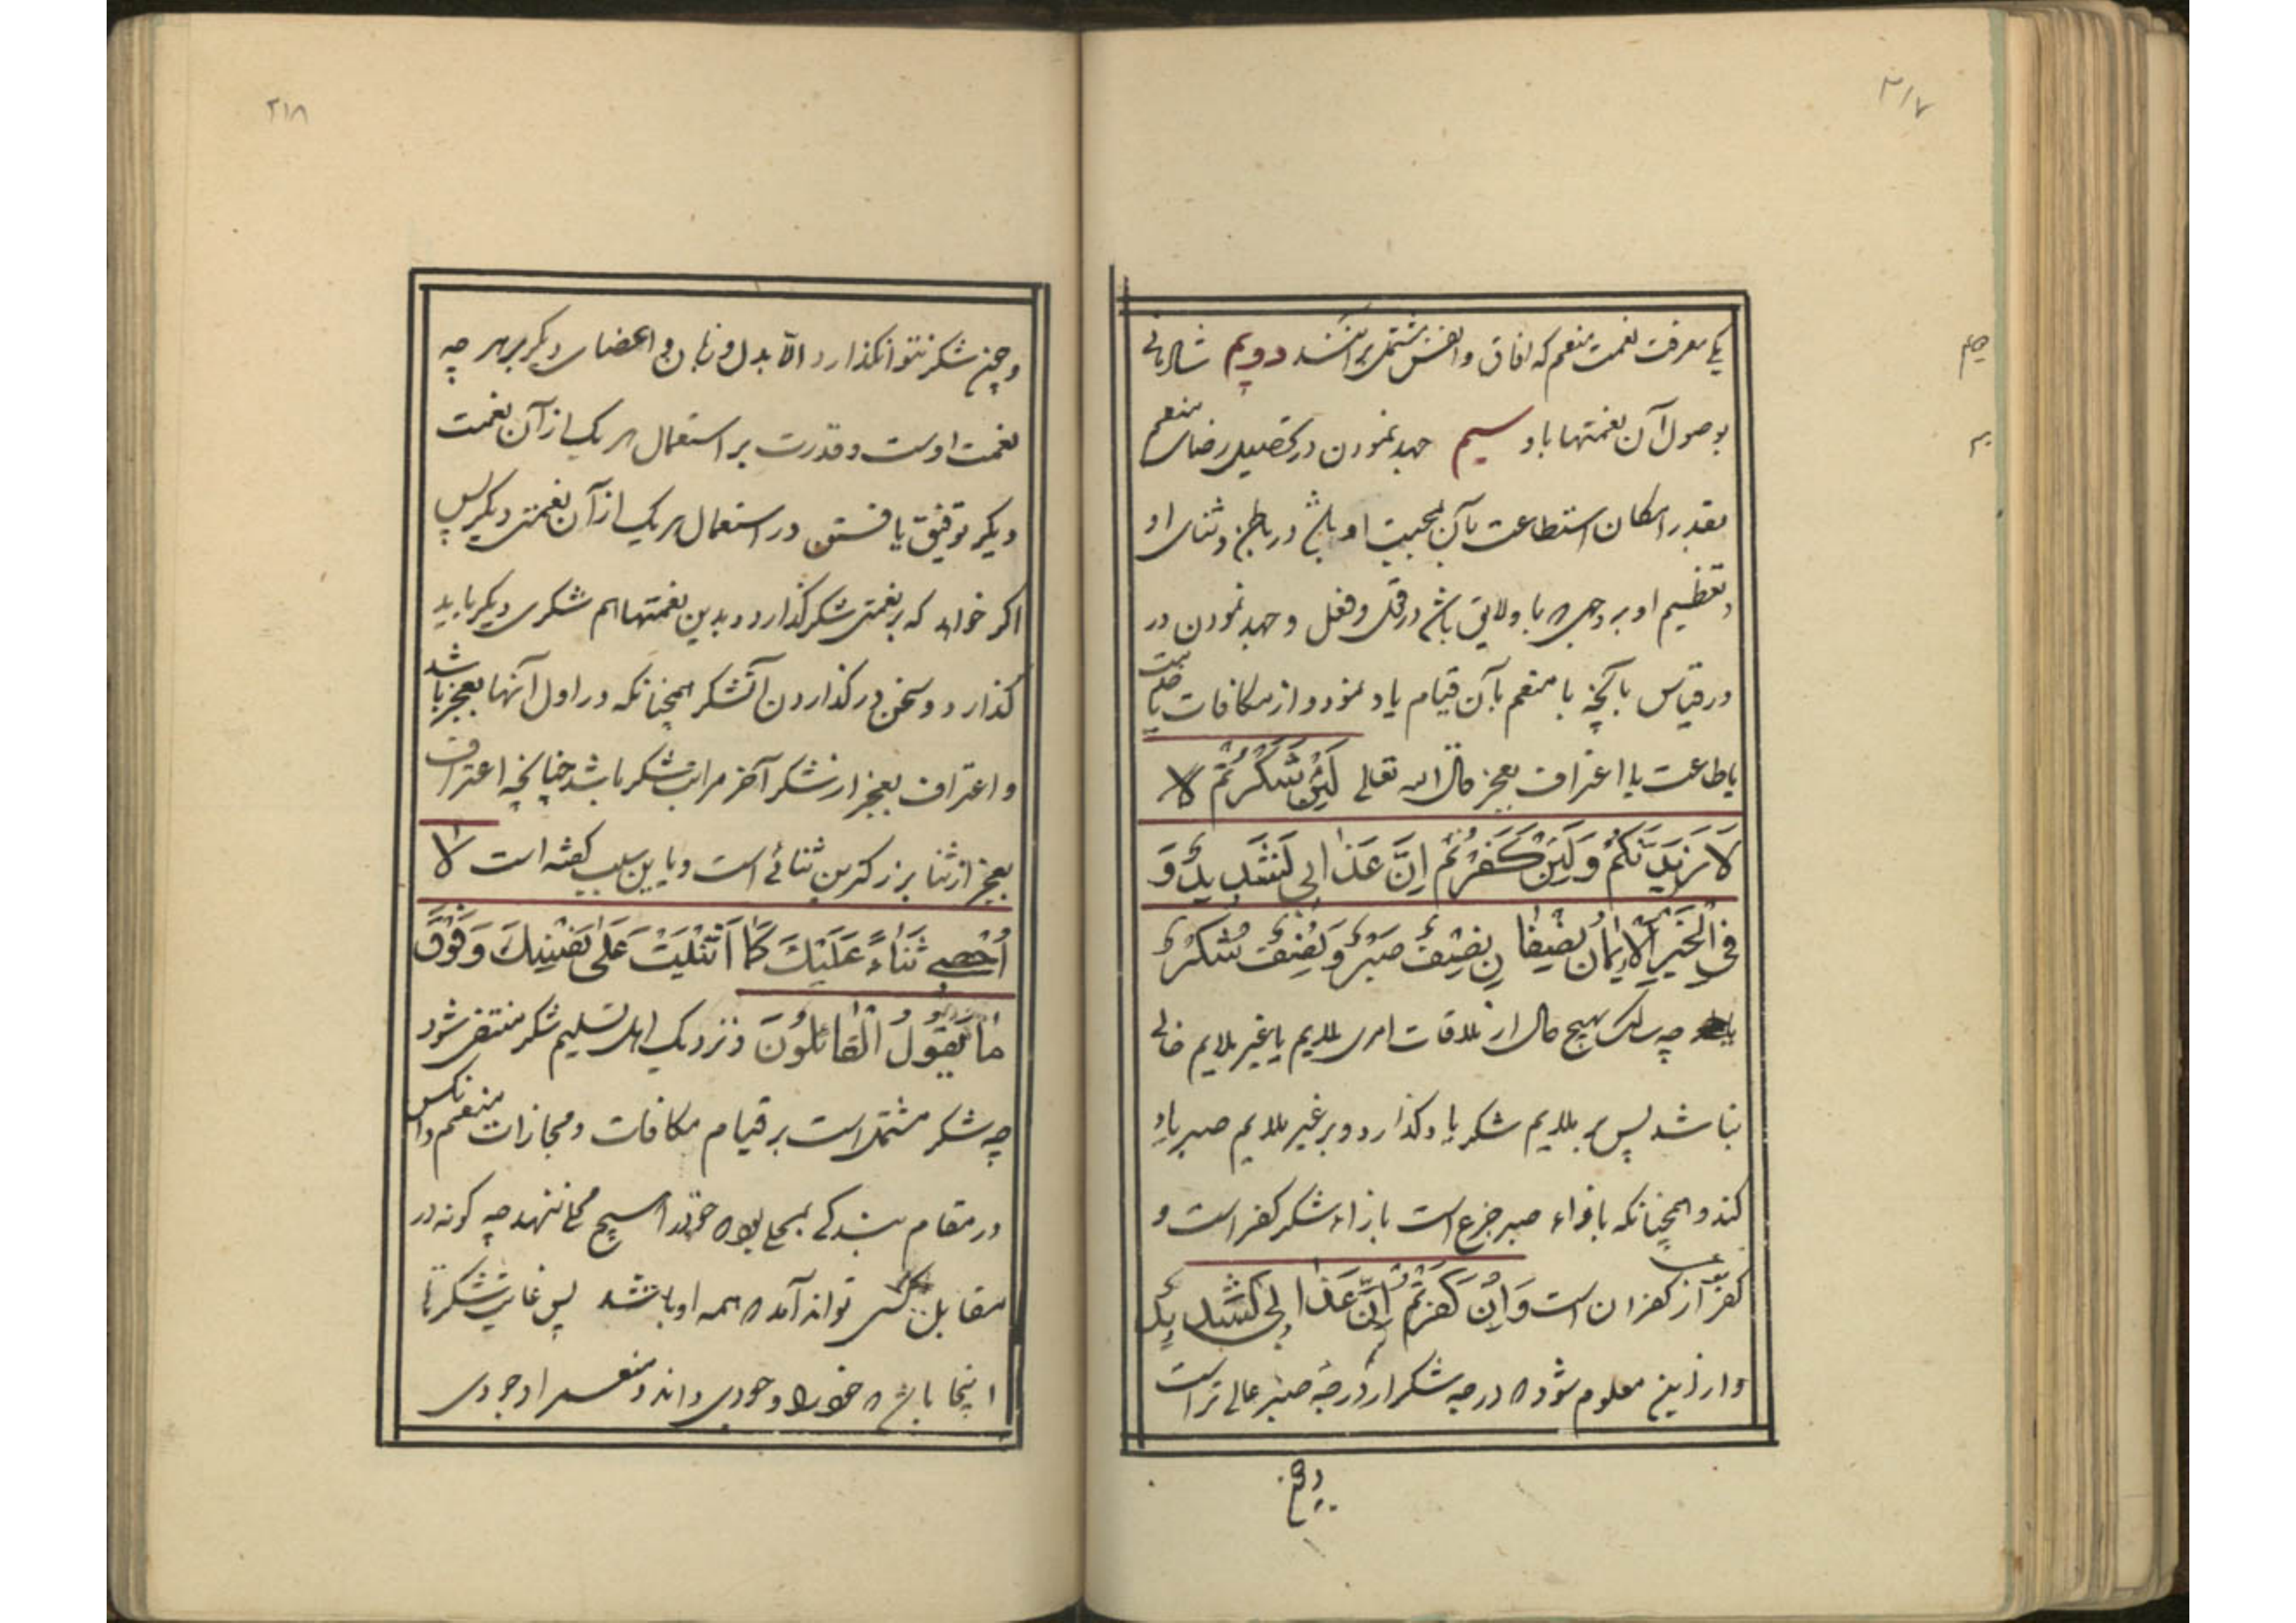 ۲۱۷
یکی معرفت نعمت منعم که افاق و انفس مشتمل بر انند دویم شادمانی
بوصول آن نعمتها باو سیم جهد نمودن در تحصیل رضای منعم
بقدر امکان استطاعت بآن بمحبت او باشد در باطن و ثنای او
و تعظیم او بر وجهی که باو لایق باشد در قول و فعل و جهد نمودن در
در قیاس بآنچه با منعم بآن قیام باو نمود و از مکافات یا
یا طاعت یا اعتراف بعجز قال الله تعالی لَئِنْ شَكَرْتُمْ لا
لَازِيدَنَّكُمْ وَلَئِنْ كَفَرْتُمْ اِنَّ عَذابِی لَشَدِيدٌ وَ
فی الْخَبَرِ الْاِيمَانُ نِصْفَانِ نِصْفٌ صَبْرٌ وَنِصْفٌ شُكْرٌ
چه سالک بهیچ حال از ملاقات امری ملایم یا غیر ملایم خالی
نباشد پس بر ملایم شکر باو گذارد و بر غیر ملایم صبر باو
کند و همچنانکه بازاء صبر جزع است بازاء شکر کفر است و
کفر از کفران است وَ اِنْ كَفَرْتُمْ اِنَّ عَذابِی لَشَدِيدٌ
و از اینی معلوم شود که درجه شکر از درجه صبر عالی تر است
و چن
۲۱۸
و چن شکر نتوان گذارد الا بدل و زبان و اعضای دیگر بر هر چه
نعمت اوست و قدرت بر استعمال هر یک از آن نعمت
دیگر توفیق یافتن در استعمال هر یک از آن نعمتی دیگر پس
اگر خواهد که بر نعمتی شکر گذارد و بدین نعمتها هم شکری دیگر باید
گذارد و سخن در گذاردن آنشکر همچنانکه در اول آنها بعجز باشد
و اعتراف بعجز از شکر آخر مراتب شکر باشد چنانچه اعتراف
بعجز از ثنا بزرگترین ثنائی است و باین سبب گفته است لَا
اُحْصِی ثَنَاءً عَلَيْكَ كَمَا اَثْنَيْتَ عَلَى نَفْسِكَ وَ فَوْقَ
مَا يَقُولُ الْقَائِلُونَ و نزدیک اهل تسلیم شکر منتفی شود
چه شکر مشتمل است بر قیام مکافات و مجازات منعم و انکس
در مقام بندگی بمحلی بود که خود را هیچ محل ننهد چه گونه در
مقابل کسی تواند آمد که همه او باشد پس غایت شکر تا
اینجا باشد که خود را وجودی داند و منعم را وجودی